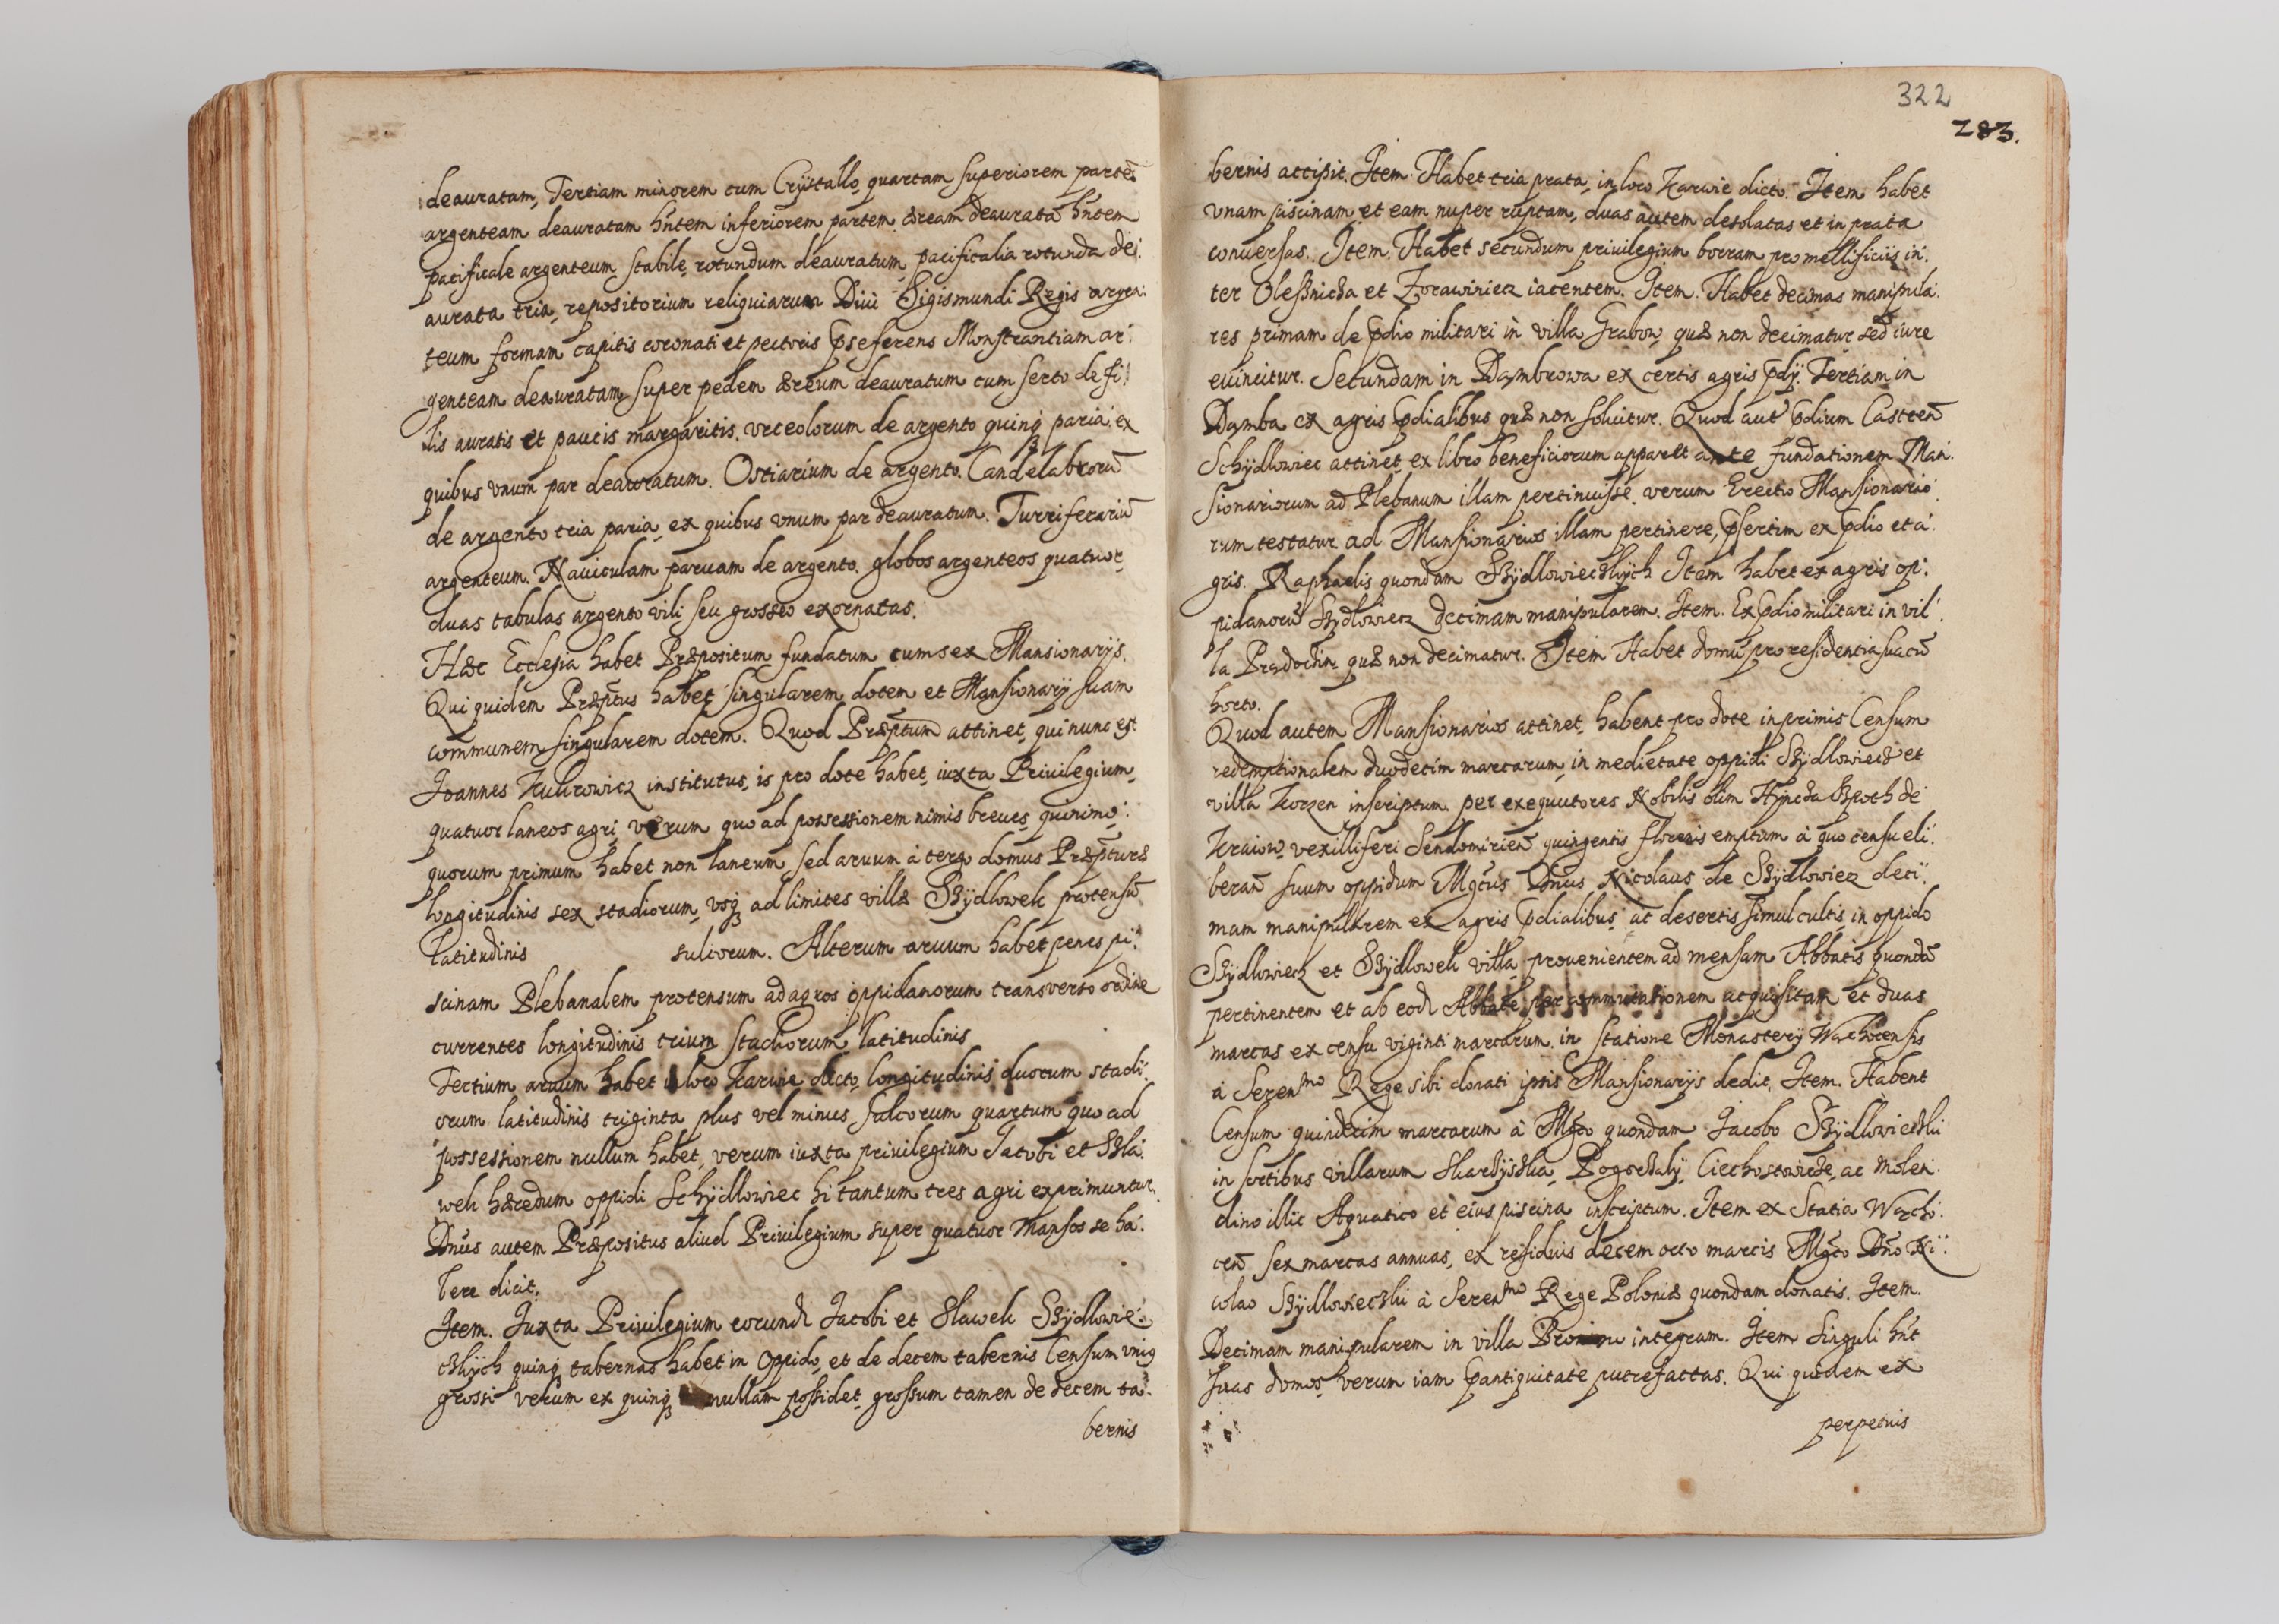 deauratam, Tertiam minorem cum Crÿstallo, quartam superiorem partē
argenteam deauratam hn̄tem inferiorem partem æream deauratā hn̄tem
pacificale argenteum stabile, rotundum deauratum, pacificalia rotunda de:
aurata tria, repositorium reliquiarum Diui Sigismundi Regis argen:
teum formam capitis coronati et pectoris p̄seferens Monstrantiam ar:
genteam deauratam super pedem æreum deauratum cum serto de fi:
lis auratis et paucis margaritis. vrceolorum de argento quinq̨ paria ex
quibus vnum par deauratum. Ostiarium de argento. Candelabrorū
de argento tria paria, ex quibus vnum par deauratum. Turriferariū
argenteum. Nauiculam paruam de argento. globos argenteos quatuor,
duas tabulas argento vili seu grosseo exornatas.
Hæc Ecclesia habet Præpositum fundatum cum sex Mansionarijs.
Qui quidem Præptūs habet singularem dotem et Mansionarÿ suam
communem singularem dotem. Quod Præptūm attinet, qui nunc est
Joannes Kukrowicz institutus, is pro dote habet, iuxta Priuilegium,
quatuor laneos agri, verum quo ad possessionem nimis breues, quinimo:
quorum primum habet non laneum, sed aruum à tergo domus Præptūræ
longitudinis sex stadiorum, vsq̨ ad limites villæ Szÿdlowek protensū
latitudinis sulcorum. Alterum aruum habet penes pi:
scinam Plebanalem protensum ad agros oppidanorum transverso ordine
currentes longitudinis trium stadiorum, latitudinis
Tertium aruum habet in loco Karwie dicto, longitudinis duorum stadi:
orum latitudinis triginta plus vel minus, sulcorum quartum quo ad
possessionem nullum habet, verum iuxta priuilegium Jacobi et Sla:
wek hæredum oppidi Schÿdlowiec hi tantum tres agri exprimuntur.
Dn̄us autem Præpositus aliud Priuilegium super quatuor Mansos se ha:
bere dicit.
Item. Juxta Priuilegium eorund Jacobi et Slawek Szÿdlowie:
czkÿch quinq̨ tabernas habet in Oppido, et de decem tabernis Censum vniq
grossi verum ex quinq̨ nullam possidet, grossum tamen de decem ta:
bernis
322
283.
bernis accipit. Item. Habet tria prata, in loco Karwie dicto. Item habet
vnam piscinam et eam nuper ruptam, duas autem desolatas et in prata
conuersas. Item. Habet secundum priuilegium borram pro mellificiis in:
ter Olesznicza et Zorawiniecz iacentem. Item. Habet decimas manipula:
res primam de p̄dio militari in villa Grabow, quæ non decimatur sed iure
euincitur. Secundam in Dąmbrowa ex certis agris p̄dÿ. Tertiam in
Dąmba ex agris p̄dialibus quæ non soluitur. Quod aut p̄dium Castren̄
Schÿdlowiec attinet, ex libro beneficiorum apparet ante fundationem Man:
sionariorum ad Plebanum illam pertinuisse, verum Erectio Mansionario:
rum testatur ad Mansionarios illam pertinere, p̄sertim ex p̄dio et a:
gris. Raphaelis quondam Szÿdlowieczkÿch Item habet ex agris op:
pidanorū Szÿdlowiecz decimam manipularem. Item. Ex p̄dio militari in vil:
la Prędocin quæ non decimatur. Item Habet domū pro residentia sua cū
horto.
Quod autem Mansionarios attinet, habent pro dote inprimis Censum
redemptionalem duodecim marcarum, in medietate oppidi Szÿdlowiecz et
villa Korzen inscriptum. per exequutores Nobilis olim Hÿncza Rzoch de
Kraiow, vexilliferi Sendomirien̄ quingentis florenis emptum à quo censu eli:
beran̄ suum oppidum Mgc̄us Dn̄us Nicolaus de Szÿdlowiecz deci:
mam manipularem ex agris p̄dialibus, ac desertis simul cultis, in oppido
Szÿdlowiecz et Szÿdlowek villa prouenientem ad mensam Abbatis quondā
pertinentem et ab eod Abbate per commutationem acquisitam et duas
marcas ex censu viginti marcarum. in statione Monasterÿ Wachocensis
à Serenᵐᵒ Rege sibi donati ipsis Mansionarijs dedit, Item. Habent
Censum quindecim marcarum à Mgc̄o quondam Jacobo Szÿdlowieczki
in sortibus villarum Skarzÿszka, Pogorzalÿ, Ciechostowicze, ac molen:
dino illic Aquatico et eius piscina inscriptum. Item ex Statia Wącho:
cen̄ sex marcas annuas, ex residuis decem octo marcis Mgc̄o Dn̄o Ni:
colao Szÿdlowieczki à Serenᵐᵒ Rege Poloniæ quondam donatis. Item.
Decimam manipularem in villa Bronow integram. Item Singuli hn̄t
suas domos, verum iam p̄ antiquitate putrefactas. Qui quidem ex
perpetuis